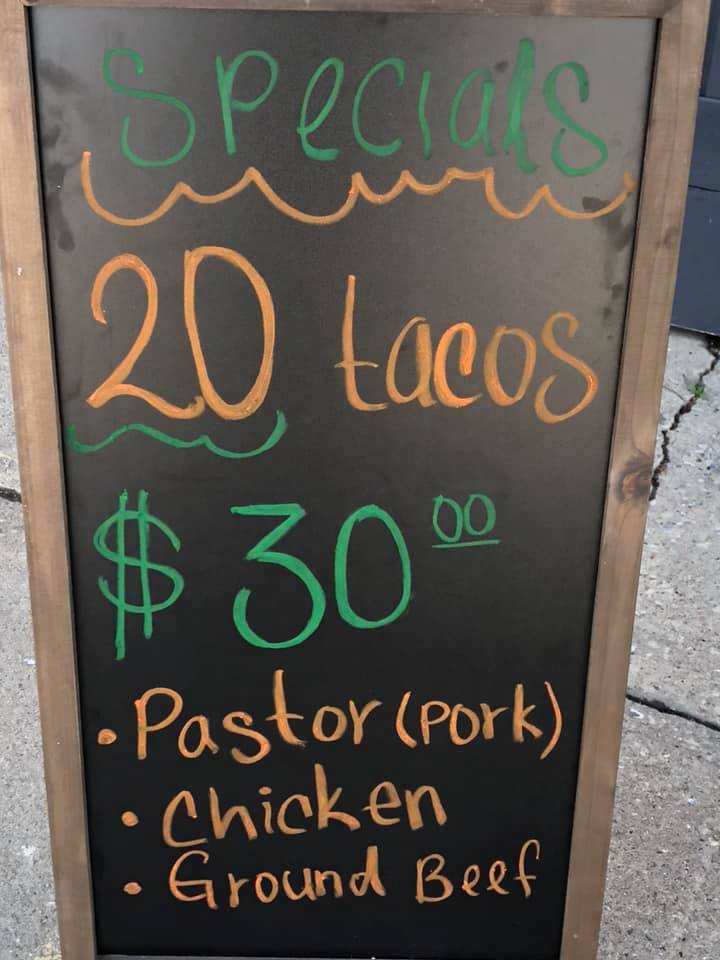 Specials
20 tacos
$ 30 00
• Pastor (Pork)
• Chicken
• Ground Beef